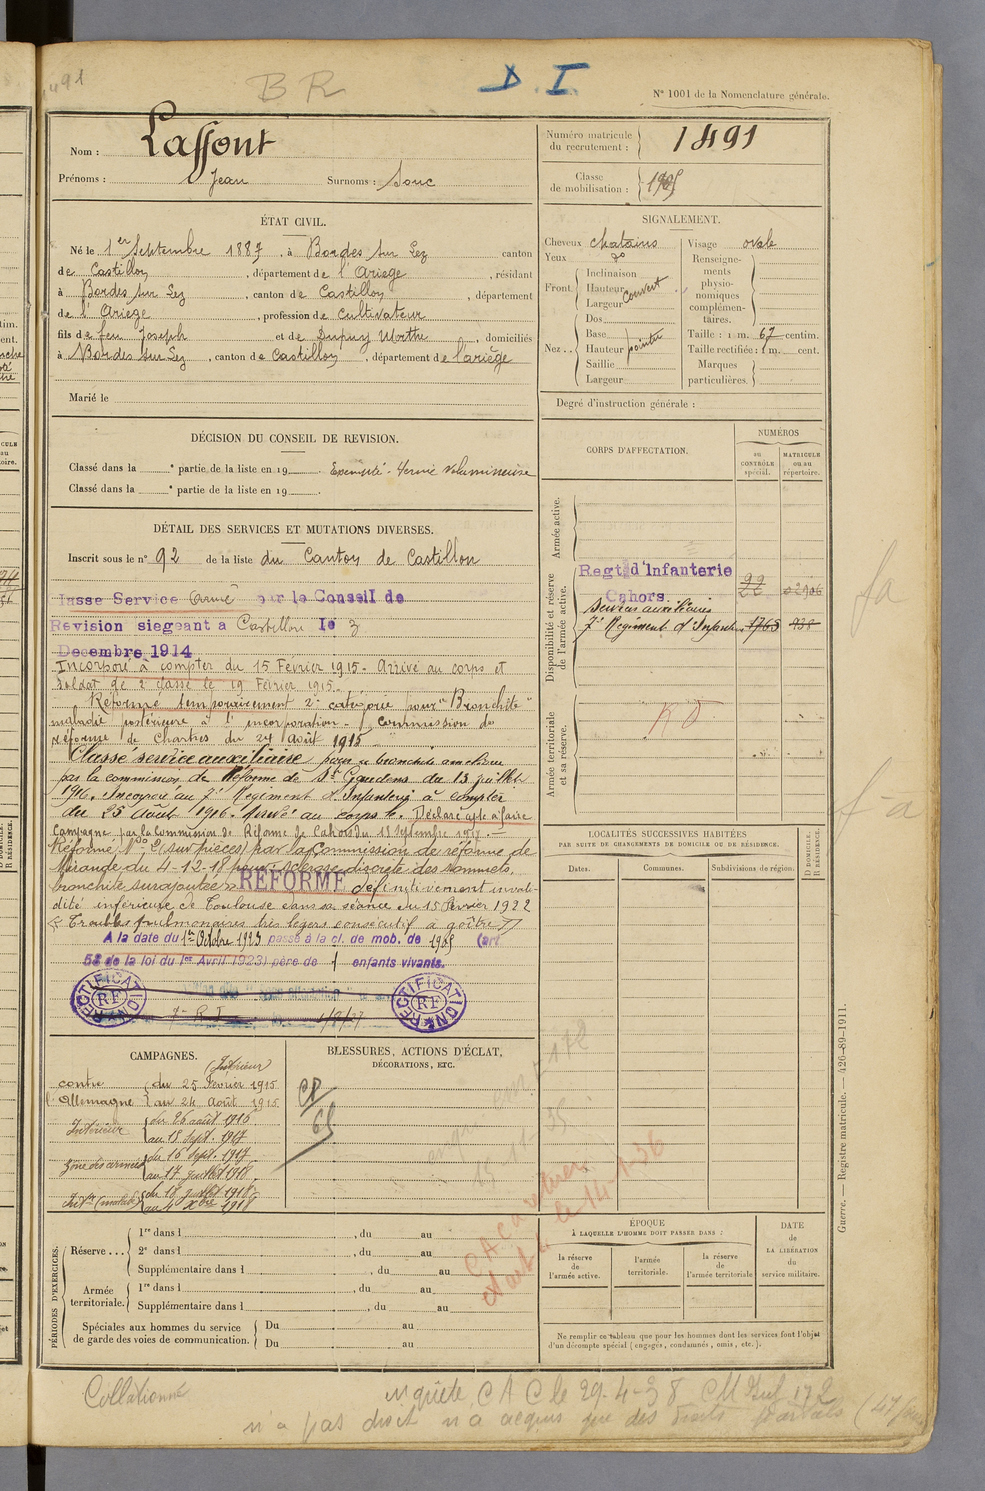 1491
BR
D.I.
N° 1001 de la Nomenclature générale.
Nom : Laffont
Prénoms : Jean Surnoms : Souc
Numéro matricule du recrutement : 1491
Classe de mobilisation : 1905
ÉTAT CIVIL.
Né le 1er Septembre 1887, à Bordes sur Lez canton
de Castillon, département de l'Ariège, résidant
à Bordes sur Lez, canton de Castillon, département
de l'Ariège, profession de cultivateur
fils de feu Joseph et de Dupuy Marthe, domiciliés
à Bordes sur Lez, canton de Castillon, département de l'ariège
Marié le
SIGNALEMENT.
Cheveux chatains
Yeux do
Front. Inclinaison
Hauteur couvert
Largeur
Nez.. Dos
Base
Hauteur pointu
Saillie
Largeur
Visage ovale
Renseignements physionomiques complémentaires.
Taille : 1 m. 67 centim.
Taille rectifiée : 1 m. cent.
Marques particulières.
Degré d'instruction générale :
DÉCISION DU CONSEIL DE REVISION.
Classé dans la e partie de la liste en 19 . Exempté - Hernie volumineuse
Classé dans la e partie de la liste en 19 .
DÉTAIL DES SERVICES ET MUTATIONS DIVERSES.
Inscrit sous le n° 92 de la liste du Canton de Castillon
Classé Service Armé par le Conseil de
Revision siegeant a Castillon le 3
Decembre 1914
Incorporé à compter du 15 Février 1915. Arrivé au corps et
soldat de 2e classe le 19 Février 1915.
Réformé temporairement 2e catégorie pour "Bronchite"
maladie postérieure à l'incorporation. Commission de
réforme de Chartres du 24 août 1915
Classé service auxiliaire pour
par la commission de Réforme de St Gaudens du 13 juillet
1916. Incorporé au 7e Régiment d'Infanterie à compter
du 25 août 1916. Arrivé au corps le. Déclaré apte à faire
Campagne par la Commission de Réforme de Cahors du 15 septembre 1917.
Réformé N° 2 (sur pièces) par la Commission de réforme de
Mirande du 4-12-18 pour : sclérose discrète des sommets
bronchite surajoutée REFORMÉ définitivement invali-
dité inférieure de Toulouse dans sa séance du 15 Février 1922
Troubles pulmonaires très légers consécutif à goître
A la date du 1er Octobre 1923 passé à la cl. de mob. de 1905 (art
58 de la loi du 1er Avril 1923) père de 1 enfants vivants.
RECTIFICATION RF
7e R I
RECTIFICATION RF
CORPS D'AFFECTATION.
NUMÉROS
au CONTRÔLE spécial.
MATRICULE ou au répertoire.
Armée active.
Disponibilité et réserve de l'armée active.
Regt d'Infanterie
Cahors.
Services auxiliaires
7e Régiment d'Infanterie 1765 938
Armée territoriale et sa réserve.
RD
fa
f-a
LOCALITÉS SUCCESSIVES HABITÉES
PAR SUITE DE CHANGEMENTS DE DOMICILE OU DE RÉSIDENCE.
Dates. Communes. Subdivisions de région.
D DOMICILE. R RÉSIDENCE.
CAMPAGNES.
(Intérieur)
contre du 25 Février 1915
l'Allemagne au 24 Août 1915
Intérieur du 26 août 1916
au 15 Sept. 1917
Zone des armées du 16 Sept. 1917
au 17 juillet 1918
Intr (malade) du 18 juillet 1918
au 4 Xbre 1918
BLESSURES, ACTIONS D'ÉCLAT,
DÉCORATIONS, ETC.
le 14-1-36
PÉRIODES D'EXERCICES.
Réserve ... 1re dans l , du au
2e dans l , du au
Supplémentaire dans l , du au
Armée territoriale. 1re dans l , du au
Supplémentaire dans l , du au
Spéciales aux hommes du service de garde des voies de communication. Du au
Du au
ÉPOQUE
À LAQUELLE L'HOMME DOIT PASSER DANS :
la réserve de l'armée active.
l'armée territoriale.
la réserve de l'armée territoriale
DATE de LA LIBÉRATION du service militaire.
Ne remplir ce tableau que pour les hommes dont les services font l'objet
d'un décompte spécial (engagés, condamnés, omis, etc.).
Guerre. — Registre matricule. — 426-89-1911.
Collationné
enquête CAC le 29-4-38
n'a pas droit n'a acquis que des droits partiels